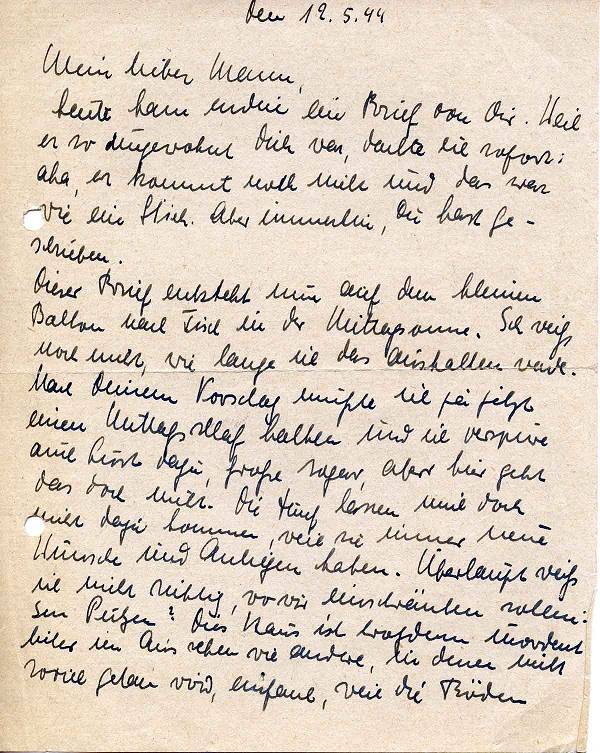 den 12.5.44
Mein lieber Mann,
heute kam endlich ein Brief von Dir. Weil
er so ungewohnt dick war, dachte ich sofort:
aha, er kommt noch nicht und das war
wie ein Stich. Aber immerhin, Du hast ge-
schrieben.
Dieser Brief entsteht nun auf dem kleinen
Balkon nach Tisch in der Mittagssonne. Ich weiß
noch nicht, wie lange ich das aushalten werde.
Nach Deinem Vorschlag müßte ich ja jetzt
einen Mittagsschlaf halten und ich verspüre
auch Lust dazu, große sogar, aber hier geht
das doch nicht. Die lassen mich doch
nicht dazu kommen, weil sie immer neue
Wünsche und Anliegen haben. Überhaupt weiß
ich nicht richtig, wo wir einschränken sollen:
Putzen? Dies Haus ist trotzdem unordent
licher im Aussehen wie andere, in denen nicht
soviel getan wird, einfach, weil die Böden